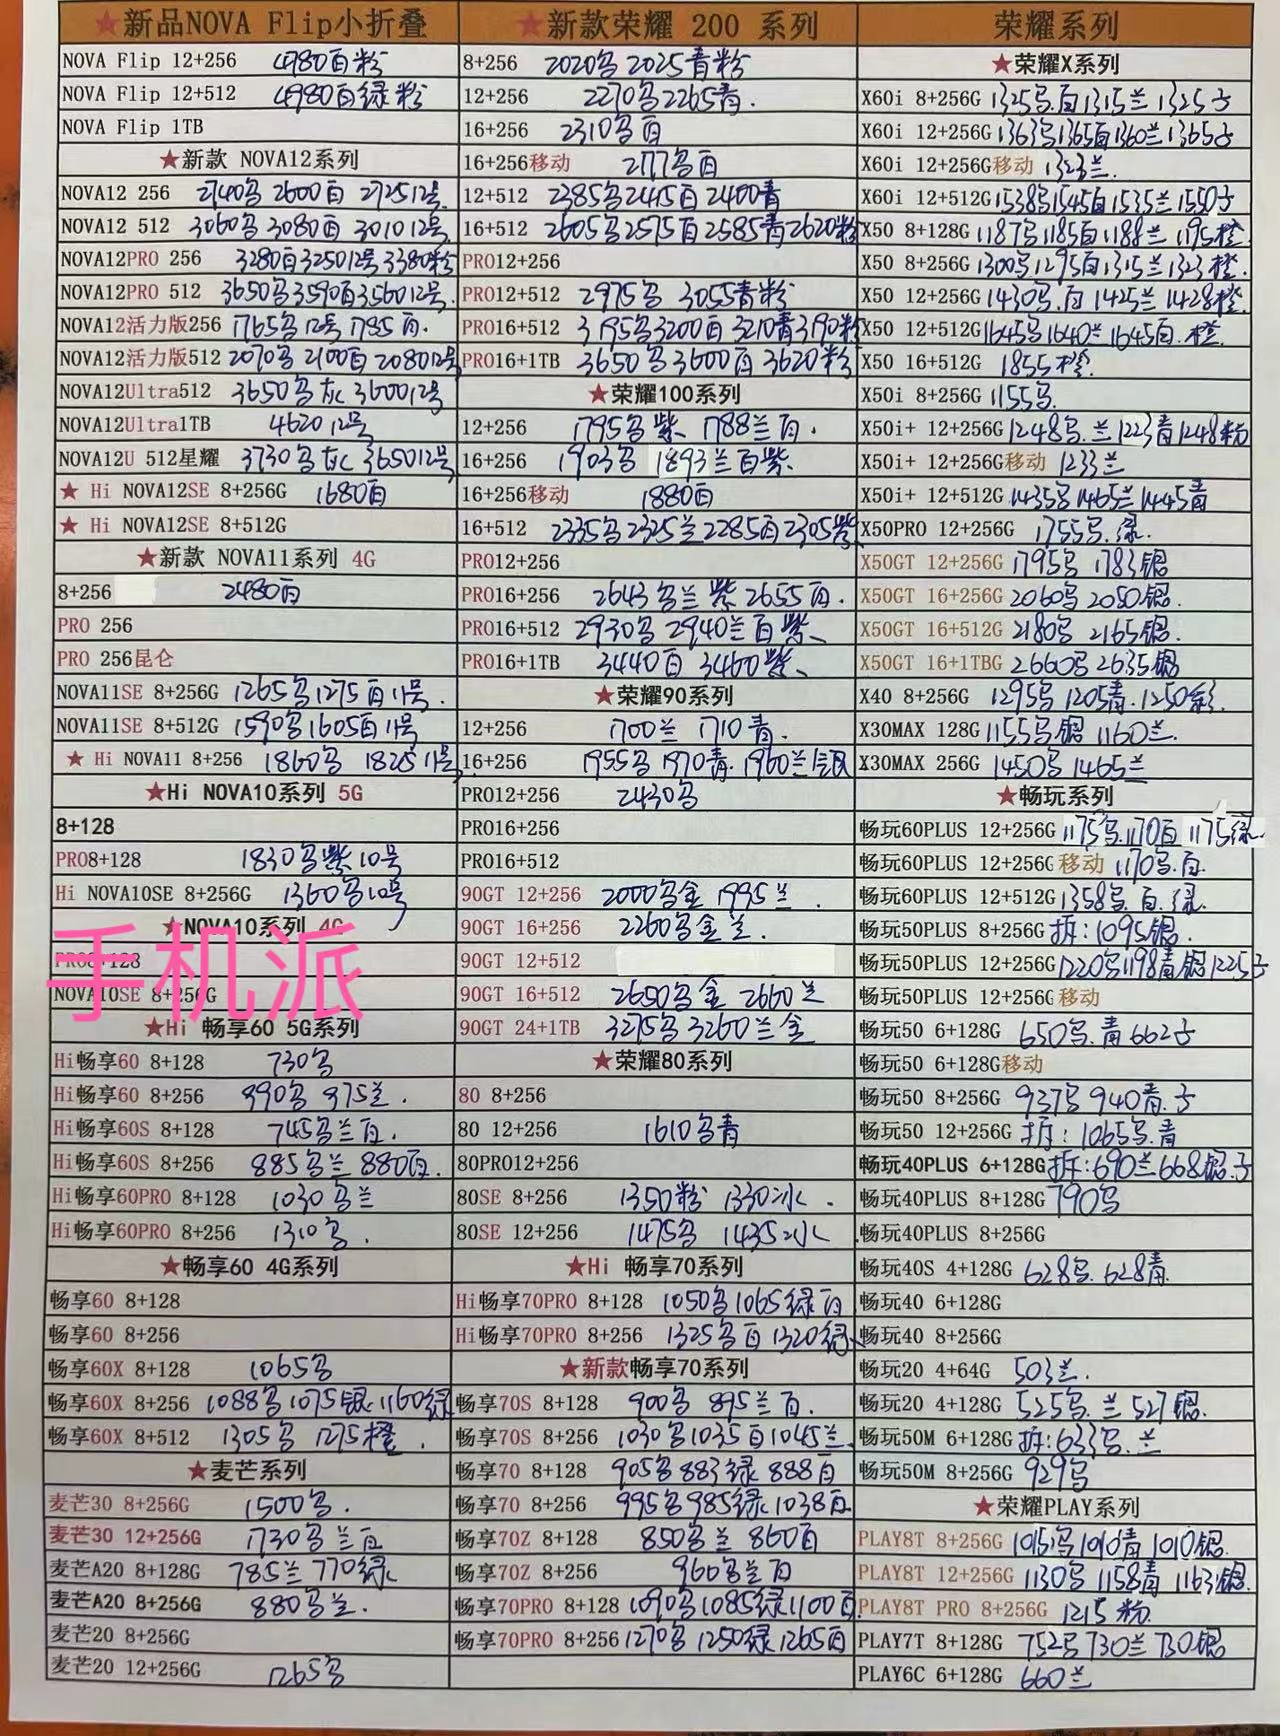 ★新品NOVA Flip小折叠
NOVA Flip 12+256 4980百粉
NOVA Flip 12+512 4980百绿粉
NOVA Flip 1TB
★新款 NOVA12系列
NOVA12 256 2740乌 2600百 2725 12号
NOVA12 512 3060乌 3080百 3010 12号
NOVA12PRO 256 3280百 3250 12号 3380粉
NOVA12PRO 512 3650乌 3590百 3560 12号.
NOVA12活力版256 1765乌 12号 1785百.
NOVA12活力版512 2070乌 2100百 2080 12号
NOVA12Ultra512 3650乌灰 3600 12号
NOVA12Ultra1TB 4620 12号
NOVA12U 512星耀 3730乌灰 3650 12号
★ Hi NOVA12SE 8+256G 1680百
★ Hi NOVA12SE 8+512G
★新款 NOVA11系列 4G
8+256 2480百
PRO 256
PRO 256昆仑
NOVA11SE 8+256G 1265乌 1275百 11号.
NOVA11SE 8+512G 1590乌 1605百 11号
★ Hi NOVA11 8+256 1860乌 1825 11号
★Hi NOVA10系列 5G
8+128
PRO8+128 1830乌紫 10号
Hi NOVA10SE 8+256G 1360乌 10号
★NOVA10系列 4G
PRO8+128
NOVA10SE 8+256G
手机派
★Hi 畅享60 5G系列
Hi畅享60 8+128 730乌
Hi畅享60 8+256 890乌 875兰.
Hi畅享60S 8+128 745乌兰百.
Hi畅享60S 8+256 885乌兰 880百.
Hi畅享60PRO 8+128 1030乌兰
Hi畅享60PRO 8+256 1310乌.
★畅享60 4G系列
畅享60 8+128
畅享60 8+256
畅享60X 8+128 1065乌
畅享60X 8+256 1088乌 1075银 1160绿
畅享60X 8+512 1305乌 1275橙.
★麦芒系列
麦芒30 8+256G 1500乌.
麦芒30 12+256G 1730乌兰百
麦芒A20 8+128G 785兰 770绿
麦芒A20 8+256G 880乌兰.
麦芒20 8+256G
麦芒20 12+256G 1265乌
★新款荣耀 200 系列
8+256 2020乌 2025青粉
12+256 2270乌 2265青.
16+256 2310乌百
16+256移动 2177乌百
12+512 2385乌 2445百 2400青
16+512 2605乌 2575百 2585青 2620粉
PRO12+256
PRO12+512 2975乌 3055青粉
PRO16+512 3195乌 3200百 3210青 3190粉
PRO16+1TB 3650乌 3600百 3620粉
★荣耀100系列
12+256 1795乌紫、1788兰百.
16+256 1903乌 1893兰百紫.
16+256移动 1880百
16+512 2335乌 2325兰 2285百 2305紫
PRO12+256
PRO16+256 2643乌兰紫 2655百.
PRO16+512 2930乌 2940兰百紫、
PRO16+1TB 3440百 3460紫、
★荣耀90系列
12+256 1700兰 1710青.
16+256 1955乌 1970青. 1960兰银
PRO12+256 2430乌
PRO16+256
PRO16+512
90GT 12+256 2000乌金 1995兰.
90GT 16+256 2260乌金兰.
90GT 12+512
90GT 16+512 2650乌金 2660兰
90GT 24+1TB 3275乌 3260兰金
★荣耀80系列
80 8+256
80 12+256 1610乌青
80PRO12+256
80SE 8+256 1350粉 1330冰.
80SE 12+256 1475乌 1435冰
★Hi 畅享70系列
Hi畅享70PRO 8+128 1050乌 1065绿百
Hi畅享70PRO 8+256 1325乌百 1320绿
★新款畅享70系列
畅享70S 8+128 900乌 895兰百.
畅享70S 8+256 1030乌 1035百 1045兰.
畅享70 8+128 905乌 883绿 888百
畅享70 8+256 995乌 985绿 1038百
畅享70Z 8+128 850乌兰 860百
畅享70Z 8+256 960乌兰百
畅享70PRO 8+128 1090乌 1085绿 1100百.
畅享70PRO 8+256 1270乌 1250绿 1265百
荣耀系列
★荣耀X系列
X60i 8+256G 1325乌.百 1315兰 1325子
X60i 12+256G 1363乌 1365百 1360兰 1365子
X60i 12+256G移动 1323兰.
X60i 12+512G 1538乌 1545百 1535兰 1550子
X50 8+128G 1187乌 1185百 1188兰 1195橙.
X50 8+256G 1300乌 1295百 1315兰 1323橙.
X50 12+256G 1430乌.百 1425兰 1428橙
X50 12+512G 1645乌 1640兰 1645百.橙.
X50 16+512G 1855橙.
X50i 8+256G 1155乌.
X50i+ 12+256G 1248乌.兰 1223青 1248粉
X50i+ 12+256G移动 1233兰
X50i+ 12+512G 1435乌 1465兰 1445青
X50PRO 12+256G 1755乌.绿.
X50GT 12+256G 1795乌 1783银
X50GT 16+256G 2060乌 2050银.
X50GT 16+512G 2180乌 2165银.
X50GT 16+1TBG 2660乌 2635银
X40 8+256G 1295乌 1205青. 1250彩.
X30MAX 128G 1155乌银 1160兰.
X30MAX 256G 1450乌 1465兰
★畅玩系列
畅玩60PLUS 12+256G 1175乌. 1170百 1175绿.
畅玩60PLUS 12+256G 移动 1170乌.百.
畅玩60PLUS 12+512G 1358乌.百.绿.
畅玩50PLUS 8+256G 拆:1095银.
畅玩50PLUS 12+256G 1220乌 1198青银 1225子
畅玩50PLUS 12+256G 移动
畅玩50 6+128G 650乌.青 662子
畅玩50 6+128G移动
畅玩50 8+256G 937乌 940青.子
畅玩50 12+256G 拆:1065乌.青
畅玩40PLUS 6+128G 拆:690兰 668银.子
畅玩40PLUS 8+128G 790乌
畅玩40PLUS 8+256G
畅玩40S 4+128G 628乌. 628青.
畅玩40 6+128G
畅玩40 8+256G
畅玩20 4+64G 503兰.
畅玩20 4+128G 525乌.兰 527银.
畅玩50M 6+128G 拆:633乌.兰
畅玩50M 8+256G 929乌
★荣耀PLAY系列
PLAY8T 8+256G 1015乌 1010青 1010银.
PLAY8T 12+256G 1130乌 1158青 1163银.
PLAY8T PRO 8+256G 1215粉.
PLAY7T 8+128G 752乌 730兰 730银
PLAY6C 6+128G 660兰